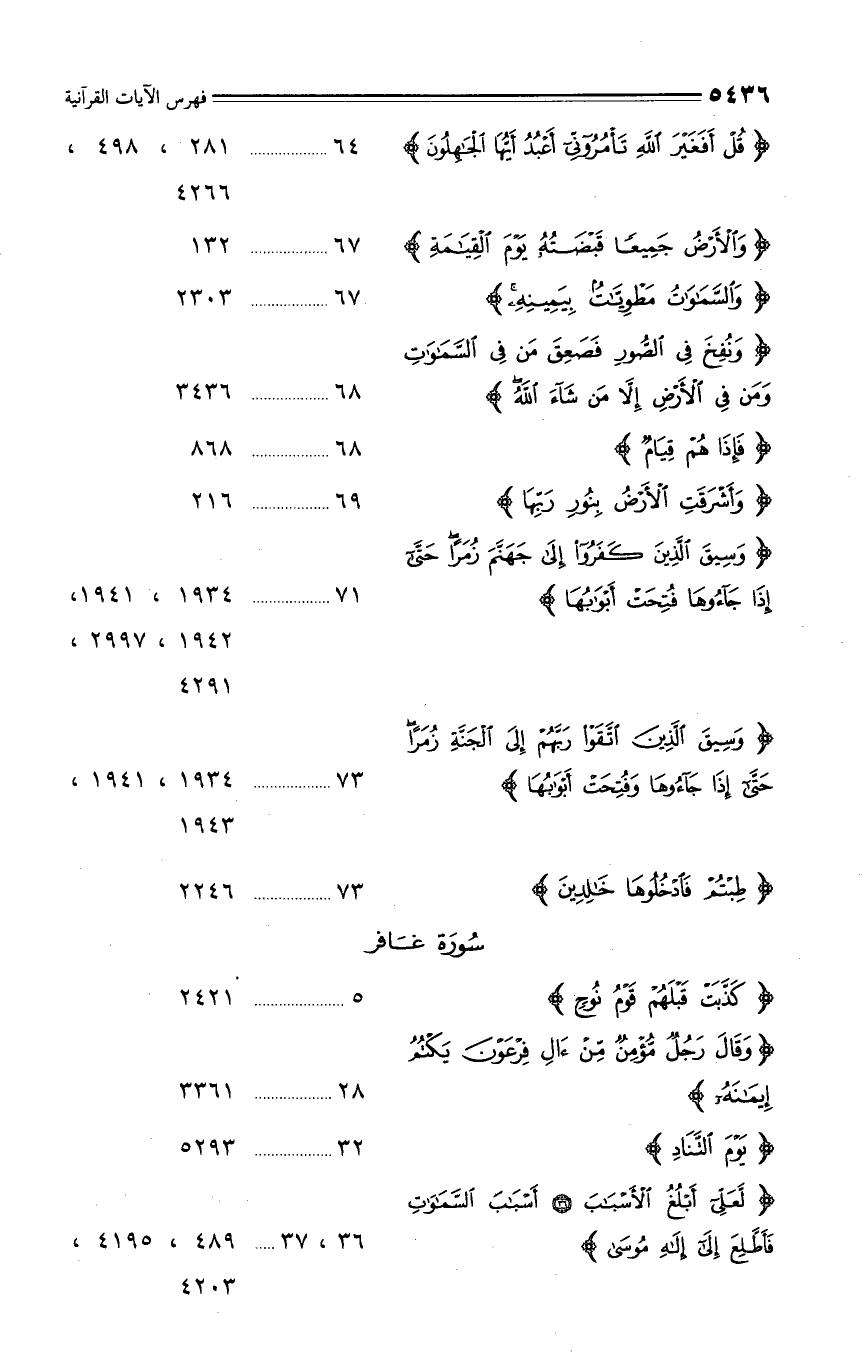 ٥٤٣٦ فهرس الآيات القرآنية
﴿ قُلْ أَفَغَيْرَ ٱللَّهِ تَأْمُرُوٓنِّىٓ أَعْبُدُ أَيُّهَا ٱلْجَـٰهِلُونَ ﴾ ٦٤ ................... ٢٨١ ، ٤٩٨ ،
٤٢٦٦
﴿ وَٱلْأَرْضُ جَمِيعًا قَبْضَتُهُۥ يَوْمَ ٱلْقِيَـٰمَةِ ﴾ ٦٧ ................... ١٣٢
﴿ وَٱلسَّمَـٰوَٰتُ مَطْوِيَّـٰتٌۢ بِيَمِينِهِۦ ۚ ﴾ ٦٧ ................... ٢٣٠٣
﴿ وَنُفِخَ فِى ٱلصُّورِ فَصَعِقَ مَن فِى ٱلسَّمَـٰوَٰتِ
وَمَن فِى ٱلْأَرْضِ إِلَّا مَن شَآءَ ٱللَّهُ ۖ ﴾ ٦٨ ................... ٣٤٣٦
﴿ فَإِذَا هُمْ قِيَامٌ ﴾ ٦٨ ................... ٨٦٨
﴿ وَأَشْرَقَتِ ٱلْأَرْضُ بِنُورِ رَبِّهَا ﴾ ٦٩ ................... ٢١٦
﴿ وَسِيقَ ٱلَّذِينَ كَفَرُوٓا۟ إِلَىٰ جَهَنَّمَ زُمَرًا ۖ حَتَّىٰٓ
إِذَا جَآءُوهَا فُتِحَتْ أَبْوَٰبُهَا ﴾ ٧١ ................... ١٩٣٤ ، ١٩٤١،
١٩٤٢ ، ٢٩٩٧ ،
٤٢٩١
﴿ وَسِيقَ ٱلَّذِينَ ٱتَّقَوْا۟ رَبَّهُمْ إِلَى ٱلْجَنَّةِ زُمَرًا ۖ
حَتَّىٰٓ إِذَا جَآءُوهَا وَفُتِحَتْ أَبْوَٰبُهَا ﴾ ٧٣ ................... ١٩٣٤ ، ١٩٤١ ،
١٩٤٣
﴿ طِبْتُمْ فَٱدْخُلُوهَا خَـٰلِدِينَ ﴾ ٧٣ ................... ٢٢٤٦
سُورَة غَافر
﴿ كَذَّبَتْ قَبْلَهُمْ قَوْمُ نُوحٍ ﴾ ٥ ...................... ٢٤٢١
﴿ وَقَالَ رَجُلٌ مُّؤْمِنٌ مِّنْ ءَالِ فِرْعَوْنَ يَكْتُمُ
إِيمَـٰنَهُۥٓ ﴾ ٢٨ ................... ٣٣٦١
﴿ يَوْمَ ٱلتَّنَادِ ﴾ ٣٢ ................... ٥٢٩٣
﴿ لَّعَلِّىٓ أَبْلُغُ ٱلْأَسْبَـٰبَ ٣٦ أَسْبَـٰبَ ٱلسَّمَـٰوَٰتِ
فَأَطَّلِعَ إِلَىٰٓ إِلَـٰهِ مُوسَىٰ ﴾ ٣٦ ، ٣٧ ..... ٤٨٩ ، ٤١٩٥ ،
٤٢٠٣